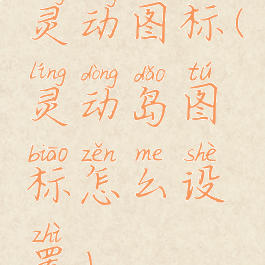 灵动图标(
líng dòng dǎo tú
灵动岛图
biāo zěn me shè
标怎么设
zhì
置)